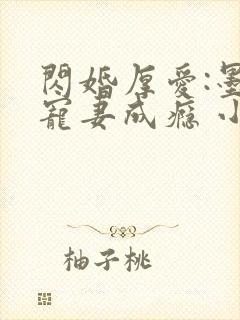 閃婚厚愛:墨
寵妻成癮 小
柚子桃